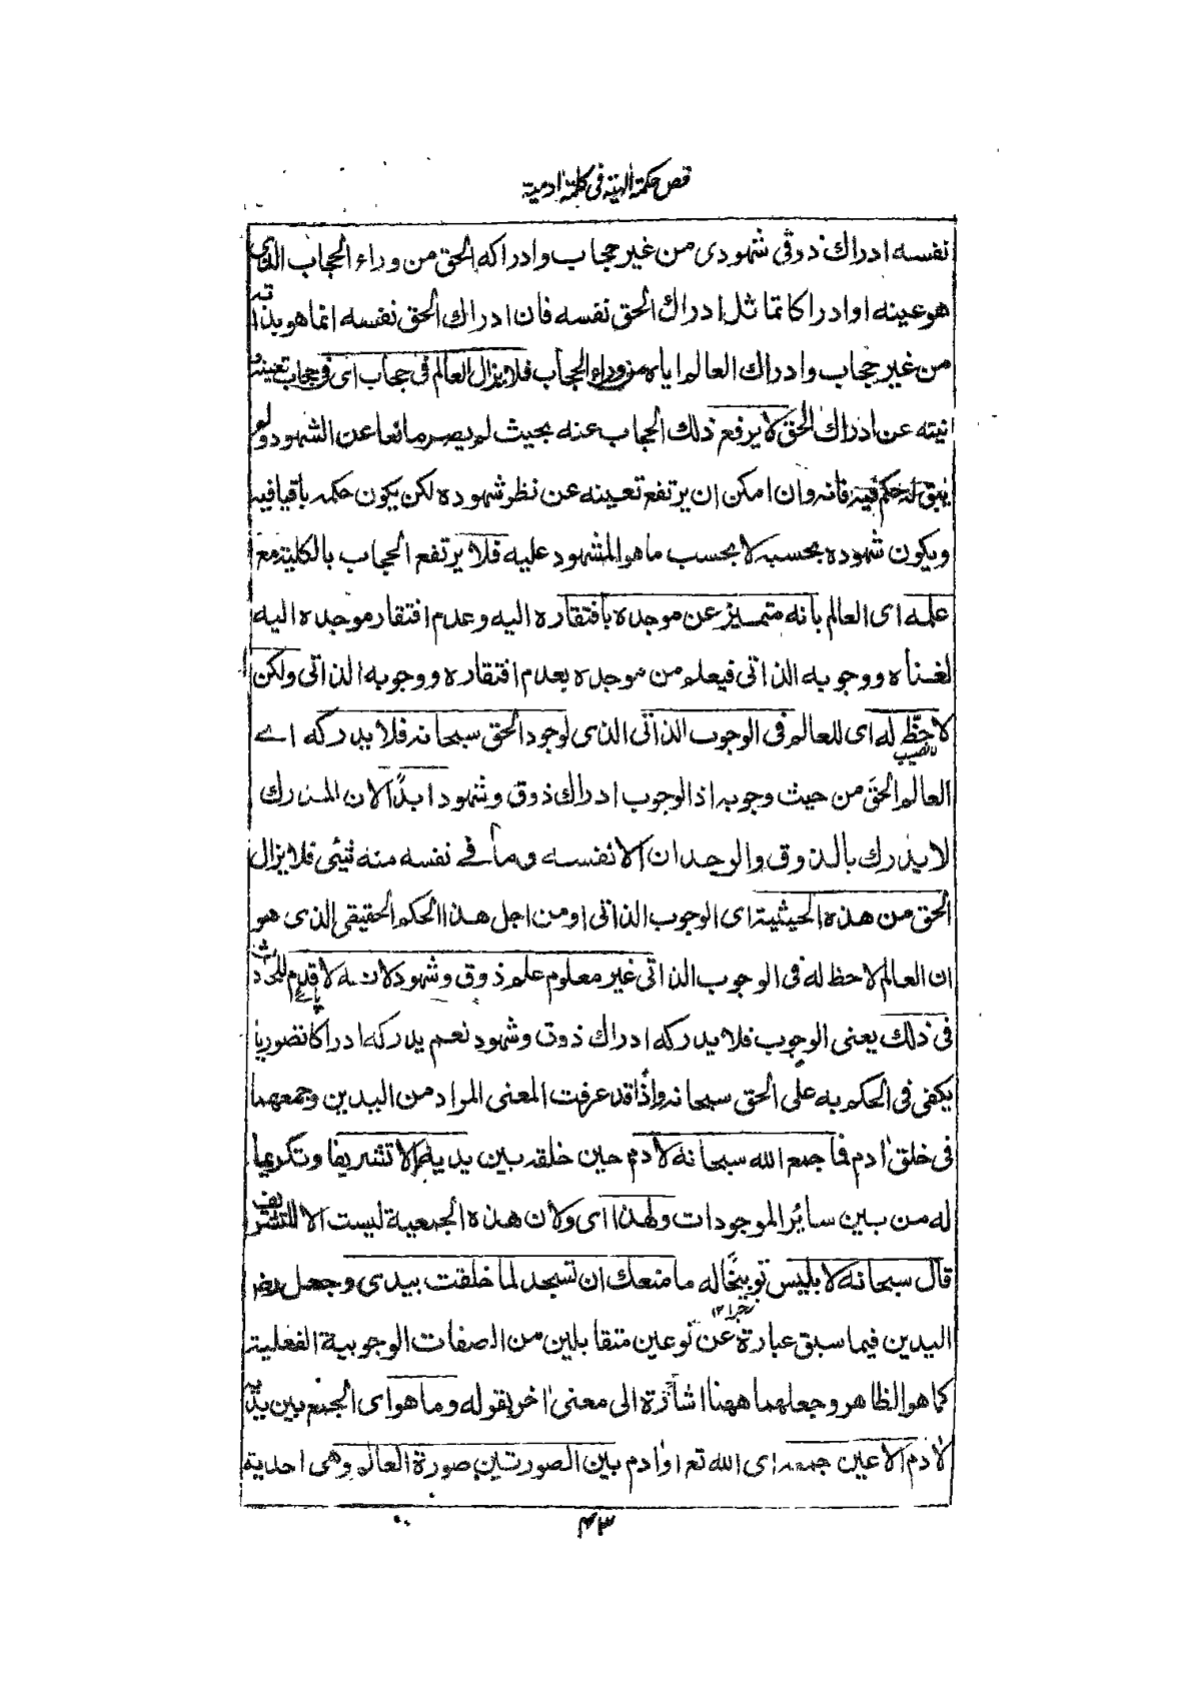 فص حكمة الهية في كلمة ادمية
نفسه ادراك ذوقى شهودى من غير حجاب وادراكه الحق من وراء الحجاب الذى
هو عينه او ادراكا تماثل ادراك الحق نفسه فان ادراك الحق نفسه انما هو بذاته
من غير حجاب وادراك العالم اياه من وراء الحجاب فلا يزال العالم فى حجاب اى فى حجاب تعينه و
انيته عن ادراك الحق لا يرفع ذلك الحجاب عنه بحيث لم يصر مانعا عن الشهود ولم
يبق له حكم فيه فانه وان امكن ان يرتفع تعينه عن نظر شهوده لكن يكون حكمه باقيا فيه
ويكون شهوده بحسبه لا بحسب ما هو المشهود عليه فلا يرتفع الحجاب بالكلية مع
علمه اى العالم بانه متميز عن موجده بافتقاره اليه وعدم افتقار موجده اليه
لغناه ووجوبه الذاتى فيعلم من موجده بعدم افتقاره ووجوبه الذاتى ولكن
لا حظ له اى للعالم فى الوجوب الذاتى الذى لوجود الحق سبحانه فلا يدركه اے
نصيب
العالم الحق من حيث وجوبه اذ الوجوب ادراك ذوق وشهود ابدا لان المدرك
لا يدرك بالذوق والوجدان الا نفسه وما فے نفسه منه شيئى فلا يزال
الحق من هذه الحيثية اى الوجوب الذاتى او من اجل هذا الحكم الحقيقى الذى هو
ان العالم لا حظ له فى الوجوب الذاتى غير معلوم علم ذوق وشهود لانه لا قدم للحادث
فى ذلك يعنى الوجوب فلا يدركه ادراك ذوق وشهود نعم يدركه ادراكا تصوريا
يكفى فى الحكم به على الحق سبحانه واذا قد عرفت المعنى المراد من اليدين وجمعهما
فى خلق ادم فما جمع الله سبحانه لادم حين خلقه بين يديه الا تشريفا وتكريما
له من بين سائر الموجودات ولهذا اى ولان هذه الجمعية ليست الا للتشريف
قال سبحانه لابليس توبيخا له ما منعك ان تسجد لما خلقت بيدى وجعل رضہ
اليدين فيما سبق عبارة عن نوعين متقابلين من الصفات الوجوبية الفعلية
كما هو الظاهر وجعلهما ههنا اشارة الى معنى اخر بقوله وما هو اى الجمع بين يديه
لادم الا عين جمعه اى الله تعـ او ادم بين الصورتين صورة العالم وهى احدية
۴۳